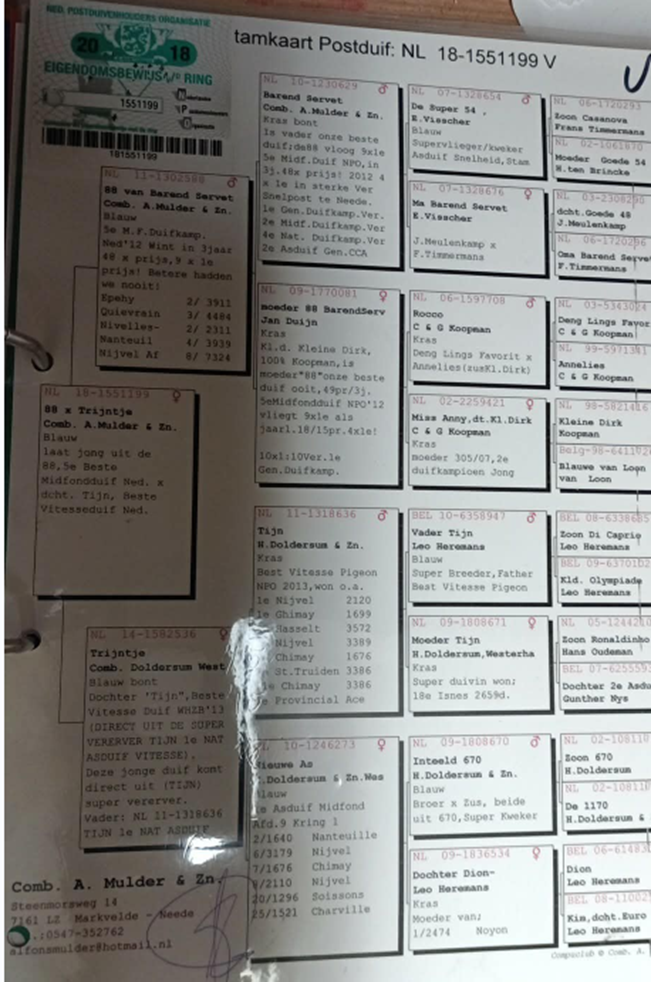 NED. POSTDUIVENHOUDERS ORGANISATIE
20 18
EIGENDOMSBEWIJS
RING
1551199
181551199
tamkaart Postduif: NL 18-1551199 V
NL 11-1302588 ♂
88 van Barend Servet
Comb. A.Mulder & Zn.
Blauw
5e M.F.Duifkamp.
Ned'12 Wint in 3jaar
48 x prijs,9 x 1e
prijs! Betere hadden
we nooit!
Epehy 2/ 3911
Quievrain 3/ 4484
Nivelles- 2/ 2311
Nanteuil 4/ 3939
Nijvel Af 8/ 7324
NL 18-1551199 ♀
88 x Trijntje
Comb. A.Mulder & Zn.
Blauw
laat jong uit de
88,5e Beste
Midfondduif Ned. x
dcht. Tijn, Beste
Vitesseduif Ned.
NL 14-1582536 ♀
Trijntje
Comb. Doldersum West
Blauw bont
Dochter "Tijn",Beste
Vitesse Duif WHZB'13
(DIRECT UIT DE SUPER
VERERVER TIJN 1e NAT
ASDUIF VITESSE).
Deze jonge duif komt
direct uit (TIJN)
super vererver.
Vader: NL 11-1318636
TIJN 1e NAT ASDUIF
NL 10-1230629 ♂
Barend Servet
Comb. A.Mulder & Zn.
Kras bont
Is vader onze beste
duif;de88 vloog 9x1e
5e Midf.Duif NPO,in
3j.48x prijs! 2012 4
x 1e in sterke Ver
Snelpost te Neede.
1e Gen.Duifkamp.Ver.
2e Midf.Duifkamp.Ver
4e Nat. Duifkamp.Ver
2e Asduif Gen.CCA
NL 09-1770081 ♀
moeder 88 BarendServ
Jan Duijn
Kras
Kl.d. Kleine Dirk,
100% Koopman,is
moeder"88"onze beste
duif ooit,49pr/3j.
5eMidfondduif NPO'12
vliegt 9x1e als
jaarl.18/15pr.4x1e!
10x1:10Ver.1e
Gen.Duifkamp.
NL 11-1318636 ♂
Tijn
H.Doldersum & Zn.
Kras
Best Vitesse Pigeon
NPO 2013,won o.a.
1e Nijvel 2120
1e Ghimay 1699
Hasselt 3572
Nijvel 3389
Chimay 1676
St.Truiden 3386
Chimay 3386
Provincial Ace
NL 10-1246273 ♀
Nieuwe As
.Doldersum & Zn.Wes
Blauw
Asduif Midfond
Afd.9 Kring 1
2/1640 Nanteuille
6/3179 Nijvel
7/1676 Chimay
/2110 Nijvel
20/1296 Soissons
25/1521 Charville
NL 07-1328654 ♂
De Super 54 ,
E.Visscher
Blauw
Supervlieger/kweker
Asduif Snelheid,Stam
NL 07-1328676 ♀
Ma Barend Servet
E.Visscher
J.Meulenkamp x
F.Timmermans
NL 06-1597708 ♂
Rocco
C & G Koopman
Kras
Deng Lings Favorit x
Annelies(zusKl.Dirk)
NL 02-2259421 ♀
Miss Anny,dt.Kl.Dirk
C & G Koopman
Kras
moeder 305/07,2e
duifkampioen Jong
BEL 10-6358947 ♂
Vader Tijn
Leo Heremans
Blauw
Super Breeder,Father
Best Vitesse Pigeon
NL 09-1808671 ♀
Moeder Tijn
H.Doldersum,Westerha
Kras
Super duivin won;
18e Isnes 2659d.
NL 09-1808670 ♂
Inteeld 670
H.Doldersum & Zn.
Blauw
Broer x Zus, beide
uit 670,Super Kweker
NL 09-1836534 ♀
Dochter Dion-
Leo Heremans
Kras
Moeder van;
1/2474 Noyon
NL 06-1720293
Zoon Casanova
Frans Timmermans
NL 02-1061870
Moeder Goede 54
H.ten Brincke
NL 03-2308290
dcht.Goede 48
J.Meulenkamp
NL 06-1720296
Oma Barend Servet
F.Timmermans
NL 03-5343024
Deng Lings Favor
C & G Koopman
NL 99-5971341
Annelies
C & G Koopman
NL 98-5821416
Kleine Dirk
Koopman
Belg-98-6411026
Blauwe van Loon
van Loon
BEL 08-6338685
Zoon Di Caprio
Leo Heremans
BEL 09-6370102
Kld. Olympiade
Leo Heremans
NL 05-1244210
Zoon Ronaldinho
Hans Oudeman
BEL 07-6255593
Dochter 2e Asdu
Gunther Nys
NL 02-108110
Zoon 670
H.Doldersum
NL 02-108110
De 1170
H.Doldersum &
BEL 06-614830
Dion
Leo Heremans
BEL 08-11002
Kim,dcht.Euro
Leo Heremans
Comb. A. Mulder & Zn.
Steenmorsweg 14
7161 LZ Markvelde - Neede
.:0547-352762
alfonsmulder@hotmail.nl
Compuclub © Comb. A.